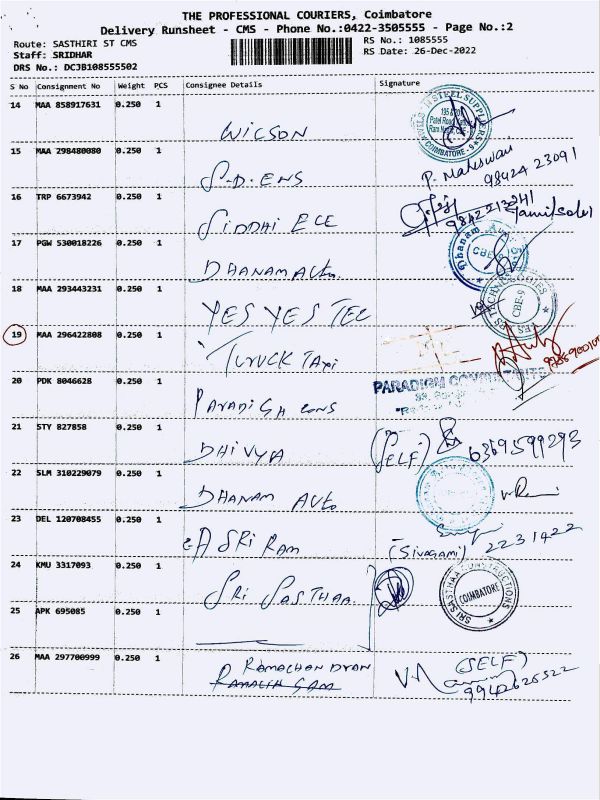 THE PROFESSIONAL COURIERS, Coimbatore
Delivery Runsheet - CMS - Phone No.:0422-3505555 - Page No.:2
Route: SASTHIRI ST CMS
RS No.: 1085555
Staff: SRIDHAR
RS Date: 26-Dec-2022
DRS No.: DCJB108555502
S No Consignment No Weight PCS Consignee Details Signature
14 MAA 858917631 0.250 1
WICSON
STEEL SUPPLIERS
COIMBATORE - 9
15 MAA 298480080 0.250 1
S.D. ENS
P. Maheswari
98424 23091
16 TRP 6673942 0.250 1
SIDDHI ECE
9842213241
Tamilselvi
17 PGW 530018226 0.250 1
DHANAM Auto
Dhanam
CBE
18 MAA 293443231 0.250 1
YES YES TEC
YES TECHNOLOGIES
CBE-9
19 MAA 296422808 0.250 1
TURUCK TAXI
20 PDK 8046628 0.250 1
PARADIGM CONS
PARADIGM
21 STY 827858 0.250 1
DHIVYA
(SELF)
6369599293
22 SLM 310229079 0.250 1
DHANAM AUTO
23 DEL 120708455 0.250 1
SRI RAM
(Sivagami) 2231422
24 KMU 3317093 0.250 1
SRI SASTHAA
SRI SASTHAA CONSTRUCTIONS
COIMBATORE
25 APK 695085 0.250 1
26 MAA 297700999 0.250 1
RAMACHANDRAN
(SELF)
9942626522